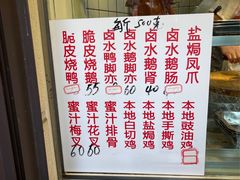 每斤500克
脆皮烧鸭
脆皮烧鹅 55
卤水鸭脚亦
卤水鹅脚亦 60
卤水鹅肾 40
卤水鹅肠
盐焗凤爪
蜜汁梅叉 60
蜜汁花叉 60
蜜汁排骨
本地白切鸡
本地盐焗鸡
本地手撕鸡
本地豉油鸡